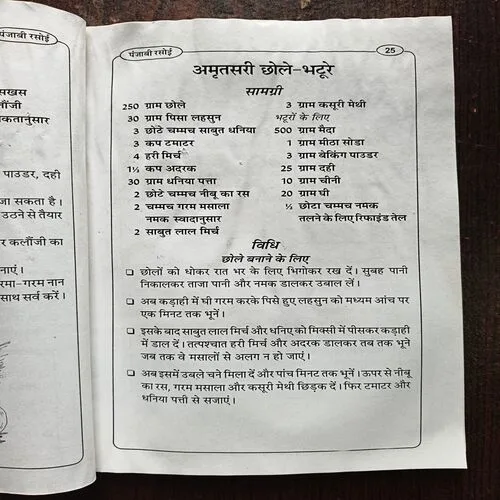 पंजाबी रसोई
कतानुसार
पाउडर, दही
जा सकता है ।
उठने से तैयार
र कलौंजी का
नाएं ।
रमा-गरम नान
साथ सर्व करें ।
पंजाबी रसोई
25
अमृतसरी छोले-भटूरे
सामग्री
250 ग्राम छोले
30 ग्राम पिसा लहसुन
3 छोटे चम्मच साबुत धनिया
3 कप टमाटर
4 हरी मिर्च
1½ कप अदरक
30 ग्राम धनिया पत्ता
2 छोटे चम्मच नीबू का रस
2 चम्मच गरम मसाला
नमक स्वादानुसार
2 साबुत लाल मिर्च
3 ग्राम कसूरी मेथी
भटूरों के लिए
500 ग्राम मैदा
1 ग्राम मीठा सोडा
3 ग्राम बेकिंग पाउडर
25 ग्राम दही
10 ग्राम चीनी
20 ग्राम घी
½ छोटा चम्मच नमक
तलने के लिए रिफाइंड तेल
विधि
छोले बनाने के लिए
❑ छोलों को धोकर रात भर के लिए भिगोकर रख दें । सुबह पानी
निकालकर ताजा पानी और नमक डालकर उबाल लें ।
❑ अब कड़ाही में घी गरम करके पिसे हुए लहसुन को मध्यम आंच पर
एक मिनट तक भूनें ।
❑ इसके बाद साबुत लाल मिर्च और धनिए को मिक्सी में पीसकर कड़ाही
में डाल दें । तत्पश्चात हरी मिर्च और अदरक डालकर तब तक भूनें
जब तक वे मसालों से अलग न हो जाएं ।
❑ अब इसमें उबले चने मिला दें और पांच मिनट तक भूनें । ऊपर से नीबू
का रस, गरम मसाला और कसूरी मेथी छिड़क दें । फिर टमाटर और
धनिया पत्ती से सजाएं ।